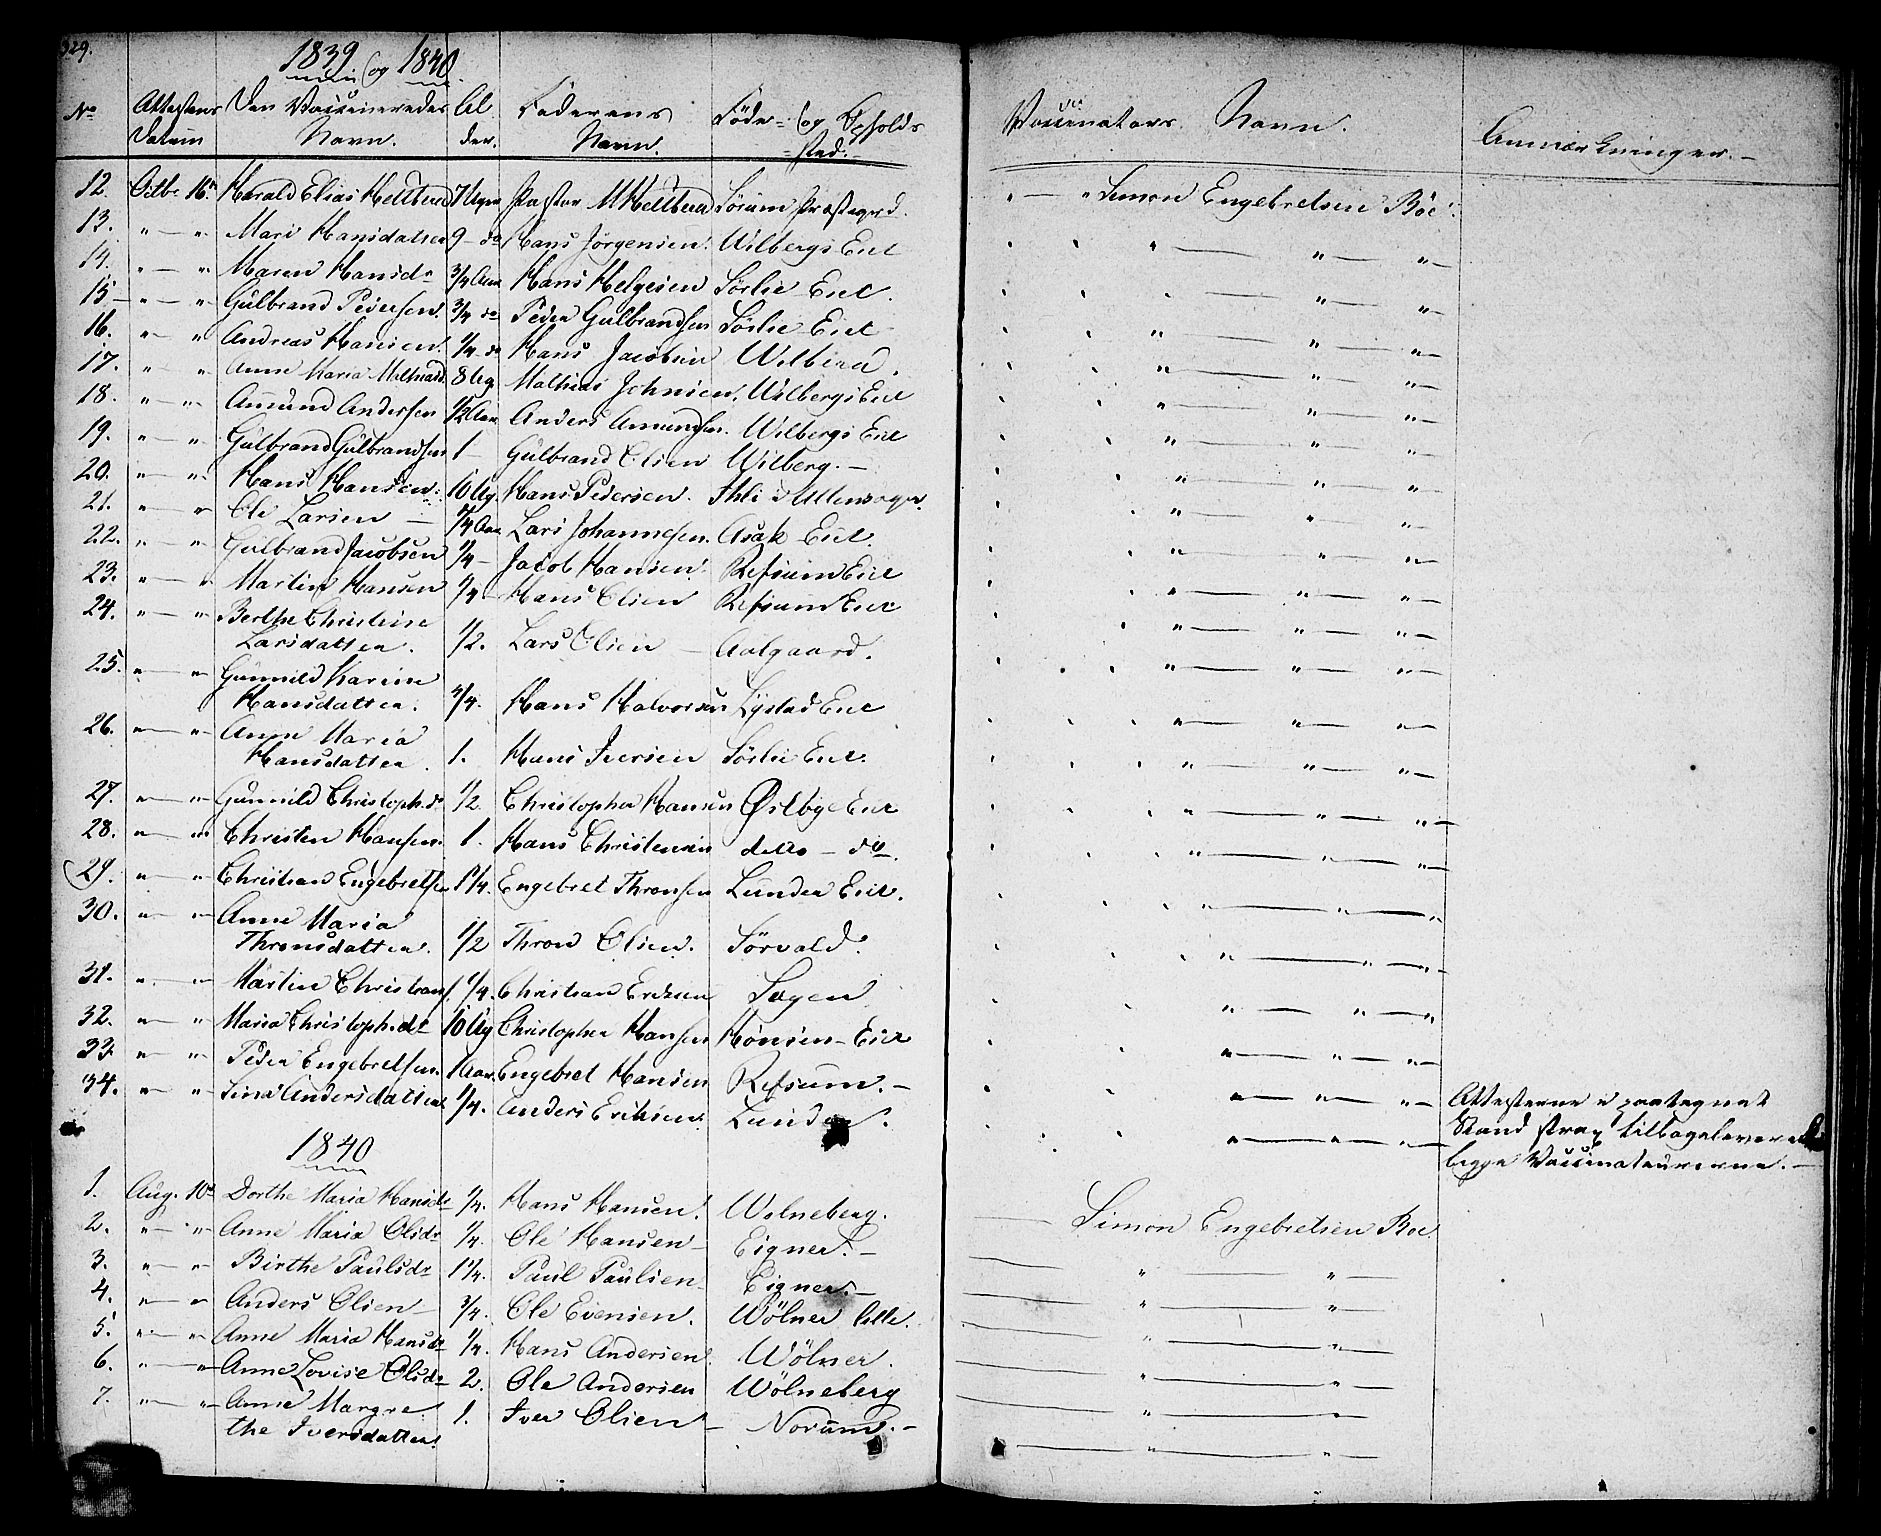 329.
1839 og 1840.
No Attestens Datum Den Vaccineredes Navn. Alder. Faderens Navn. Føde- og Opholds-sted.- Vaccinators Navn. Anmærkninger.-
12. Octbr 16. Harald Elias Hellberd 7 Uger Pastor M Hellberd Sørum Præstegrd. " — " Simon Engebretsen Böe.
13. " — " Mari Hansdatter 9 - do Hans Jørgensen. Wilbergs Eiet " — " — " —
14. " — " Maren Hansdr 3/4 Aar Hans Helgesen Sørlie Eiet. " — " — " —
15 — " — " Gulbrand Pedersen. 3/4 do Peder Gulbrandsen Sörlie Eiet " — " — " —
16. " — " Andreas Hansen. 1/4 do Hans Jacobsen Wilberg. " — " — " —
17. " — " Anne Maria Mathiasd. 8 Ug. Mathias Johnsen. Wilbergs Eiet " — " — " —
18. " — " Amund Andersen 1/2 Aar Anders Amundsen. Wilbergs Eiet " — " — " —
19. " — " Gulbrand Gulbrandsen 1 — Gulbrand Olsen Wilberg. — " — " — " —
20. " — " Hans Hansen. 10 Ug. Hans Pedersen. Ihle i Ullensager. " — " — " —
21. " — " Ole Larsen — 1/4 Aar Lars Johannesen. Asak Eiet. " — " — " —
22. " — " Gulbrand Jacobsen 1/4 — Jacob Hansen. Refsum Eiet " — " — " —
23. " — " Martin Hansen 1/4 — Hans Olsen Refsum Eiet " — " — " —
24. " — " Berthe Christine
Larsdatter. 1/2. Lars Olsen — Aalgaard. " — " — " —
25. " — " Gunnild Karine
Hansdatter. 1/4. Hans Halvorsen Lystad Eiet " — " — " —
26. " — " Anne Maria
Hansdatter. 1. Hans Iversen Sørlie Eiet. " — " — " —
27. " — " Gunnild Christoph.dr 1/2 Christopher Hansen Østbye Eiet " — " — " —
28. " — " Christen Hansen. 1. Hans Christensen ditto — do. " — " — " —
29. " — " Christian Engebretsen 1 1/4. Engebret Thronsen Lunder Eiet. " — " — " —
30. " — " Anne Maria
Thronsdatter. 1/2 Thron Olsen. Sörvald. " — " — " —
31. " — " Martin Christians. 1/4. Christian Ericsen Sagen " — " — " —
32. " — " Maria Christoph.dr 10 Ug Christopher Hansen Hønsen- Eiet " — " — " —
33. " — " Peder Engebretsen. 1 Aar. Engebret Hansen Refsum. — " — " — " —
34. " — " Lina Andersdatter 1/4. Anders Eriksen. Lunder. " — " — " —
Attesterne i paategnet
Stand strax tilbageleveret
begge Vaccinateurerne. —
1840
1. Aug. 10. Dorthe Maria Hansdr 1/4. Hans Hansen. Wolneberg. — Simon Engebretsen Boe.
2. " — " Anne Maria Olsdr 1/4. Ole Hansen — Eigner. — " — " —
3. " — " Birthe Paulsdr 1 1/4. Paul Paulsen Eigner. — " — " —
4. " — " Anders Olsen — 3/4. Ole Evensen. Wölner lille. " — " —
5. " — " Anne Maria Hansdr 1/4. Hans Andersen. Wölner. " — " —
6. " — " Anne Lovise Olsdr 2. Ole Andersen Wölneberg " — " —
7. " — " Anne Margre
the Iversdatter. 1. Iver Olsen — Norum. — " — " —